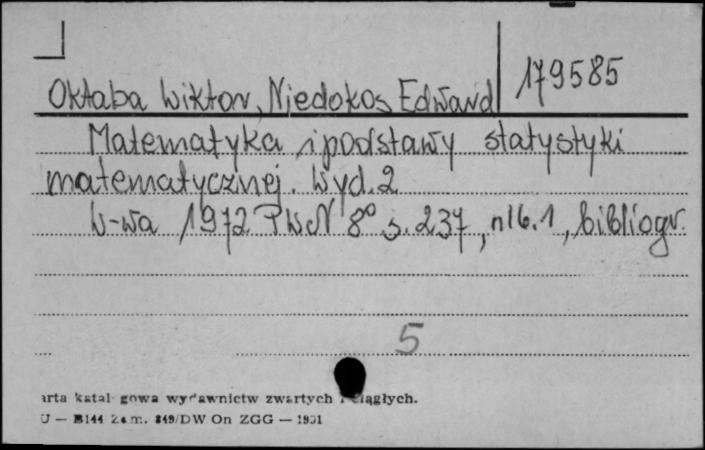 179585
Oktaba Wiktor, Niedokos Edward
Matematyka i podstawy statystyki
matematycznej. Wyd. 2
W-wa 1972 PWN 8° s. 237, nlb. 1, bibliogr.
5
arta katal gowa wydawnictw zwartych i ciągłych.
U — B144 Zam. 849/DW On ZGG — 1951